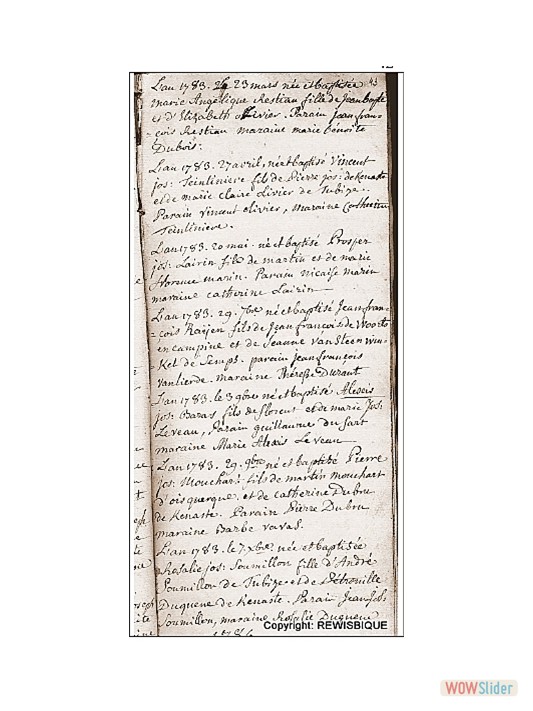 L'an 1783. 23 mars née et baptisée
marie Angelique Restiau fille de Jean bapte
et d'Elizabeth olivier. Parain jean fran-
çois Restiau maraine marie benoite
Dubois.
L'an 1783. 27 avril, né et baptisé Vincent
jos: Teinliniere fils de Pierre jos: de Kenaste
et de marie claire olivier de Tubize.
Parain vincent olivier, maraine
Teinliniere.
L'an 1783. 20 mai. né et baptisé Prosper
jos: Lairin fils de martin et de marie
florence marin. Parain nicaise marin
maraine catherine Lairin
L'an 1783. 29. 7bre né et baptisé Jean fran-
çois Raijen fils de Jean francois de
en campine et de Jeanne vansteen win-
Kel de Semps. parain jean francois
vanlierde. maraine Therese Durant
L'an 1783. le 3 9bre né et baptisé Alexis
jos: Baras fils de florent et de marie jos:
Leveau, Parain guillaume du Sart
maraine Marie Alexis Leveau
L'an 1783. 29. 9bre né et baptisé Pierre
jos: Mouchart fils de martin mouchart
d'oisquerque. et de catherine Dubru
de Kenaste. Parain Pierre Dubru
maraine Barbe
L'an 1783. le 7. xbre. née et baptisée
Rosalie jos: Soumillon fille d'André
Soumillon de Tubize et de Petronille
Duquene de Kenaste. Parain Jean Jos:
Soumillon, maraine Rosalie Duquene
Copyright: REWISBIQUE
WOWSlider